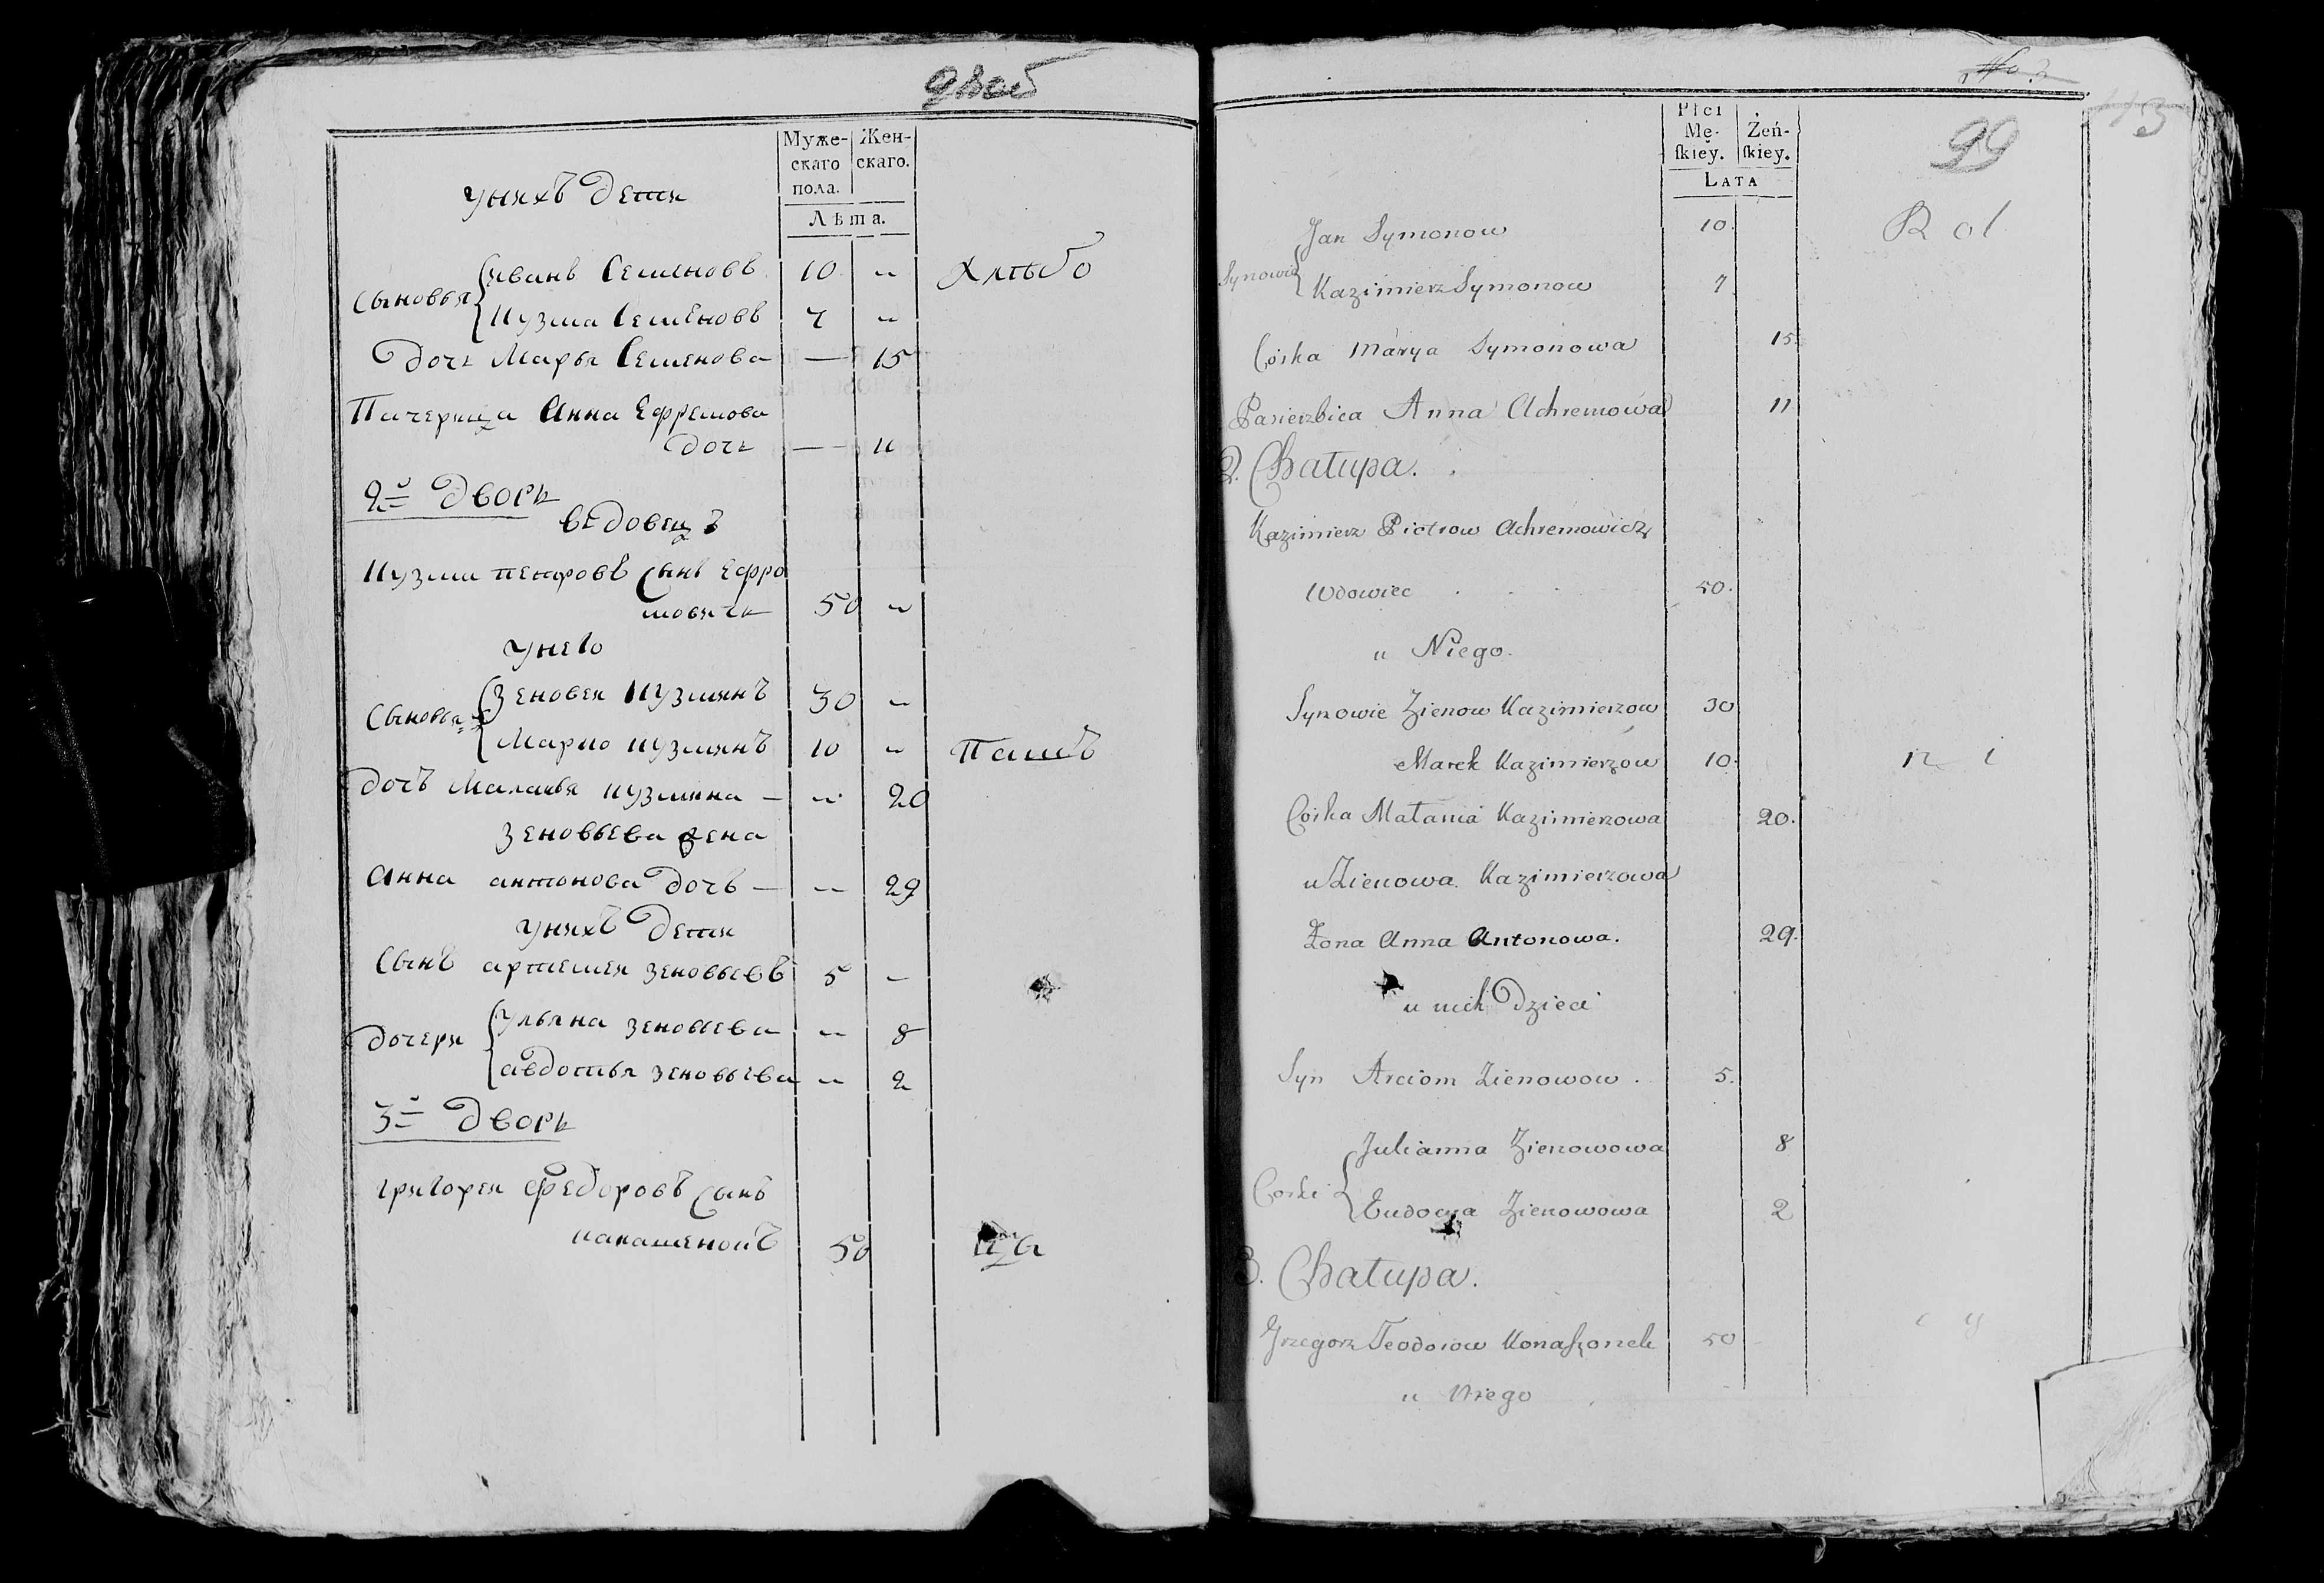 98об
Муже-
скаго
пола.
Жен-
скаго.
Лѣта.
унихъ дети
Сыновья
иванъ Семеновъ 10 "
Кузма Семеновъ 7 "
дочь Марья Семенова — 15
Пачерица Анна Ефремова
дочь — 11
Хлѣбо
2й дворъ
вдовецъ
Кузма петровъ сынъ Ефре
мовичъ 50 "
унего
Сыновья
Зеновеи Кузминъ 30 "
Марко кузминъ 10 "
Пашъ
дочъ Маланья кузмина — " 20
Зеновьева жена
Анна антонова дочь — " 29
унихъ дети
Сынъ артемеи зеновьевъ 5 —
дочери
ульяна зеновьева " 8
авдотья зеновьева " 2
3й дворъ
григореи федоровъ сынъ
канашенокъ 50
No. 3
113
99
Płci
Mę-
skiey.
Żeń-
skiey.
LATA
Rol
Synowie
Jan Symonow 10.
Kazimierz Symonow 7
Córka Marya Symonowa 15.
Pasierzbica Anna Achremowa 11
2. Chałupa.
Kazimierz Piotrow Achremowicz
Wdowiec 50.
u Niego.
Synowie Zienow Kazimierzow 30
Marek Kazimierzow 10.
n i
Córka Małania Kazimierzowa 20.
u Zienowa Kazimierzowa
Żona Anna Antonowa. 29.
u nich Dzieci
Syn Arciom Zienowow. 5.
Corki
Julianna Zienowowa 8
Eudocya Zienowowa 2
3. Chałupa.
Grzegorz Teodorow Konaszonek 50
c y
u Niego